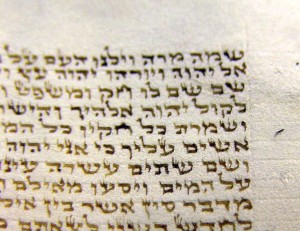 שמה מרה וילנו העם על
אל יהוה ויורהו יהוה עץ
שם שם לו חק ומשפט
לקול יהוה אלהיך והישר
ושמרת כל חקיו כל המ
אשים עליך כי אני יהוה
ושם שתים עשרה
על המים ויסעו מאילם
מדבר סין אשר בין איל